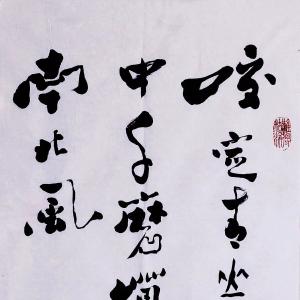 咬定青坐
中千磨
南北風